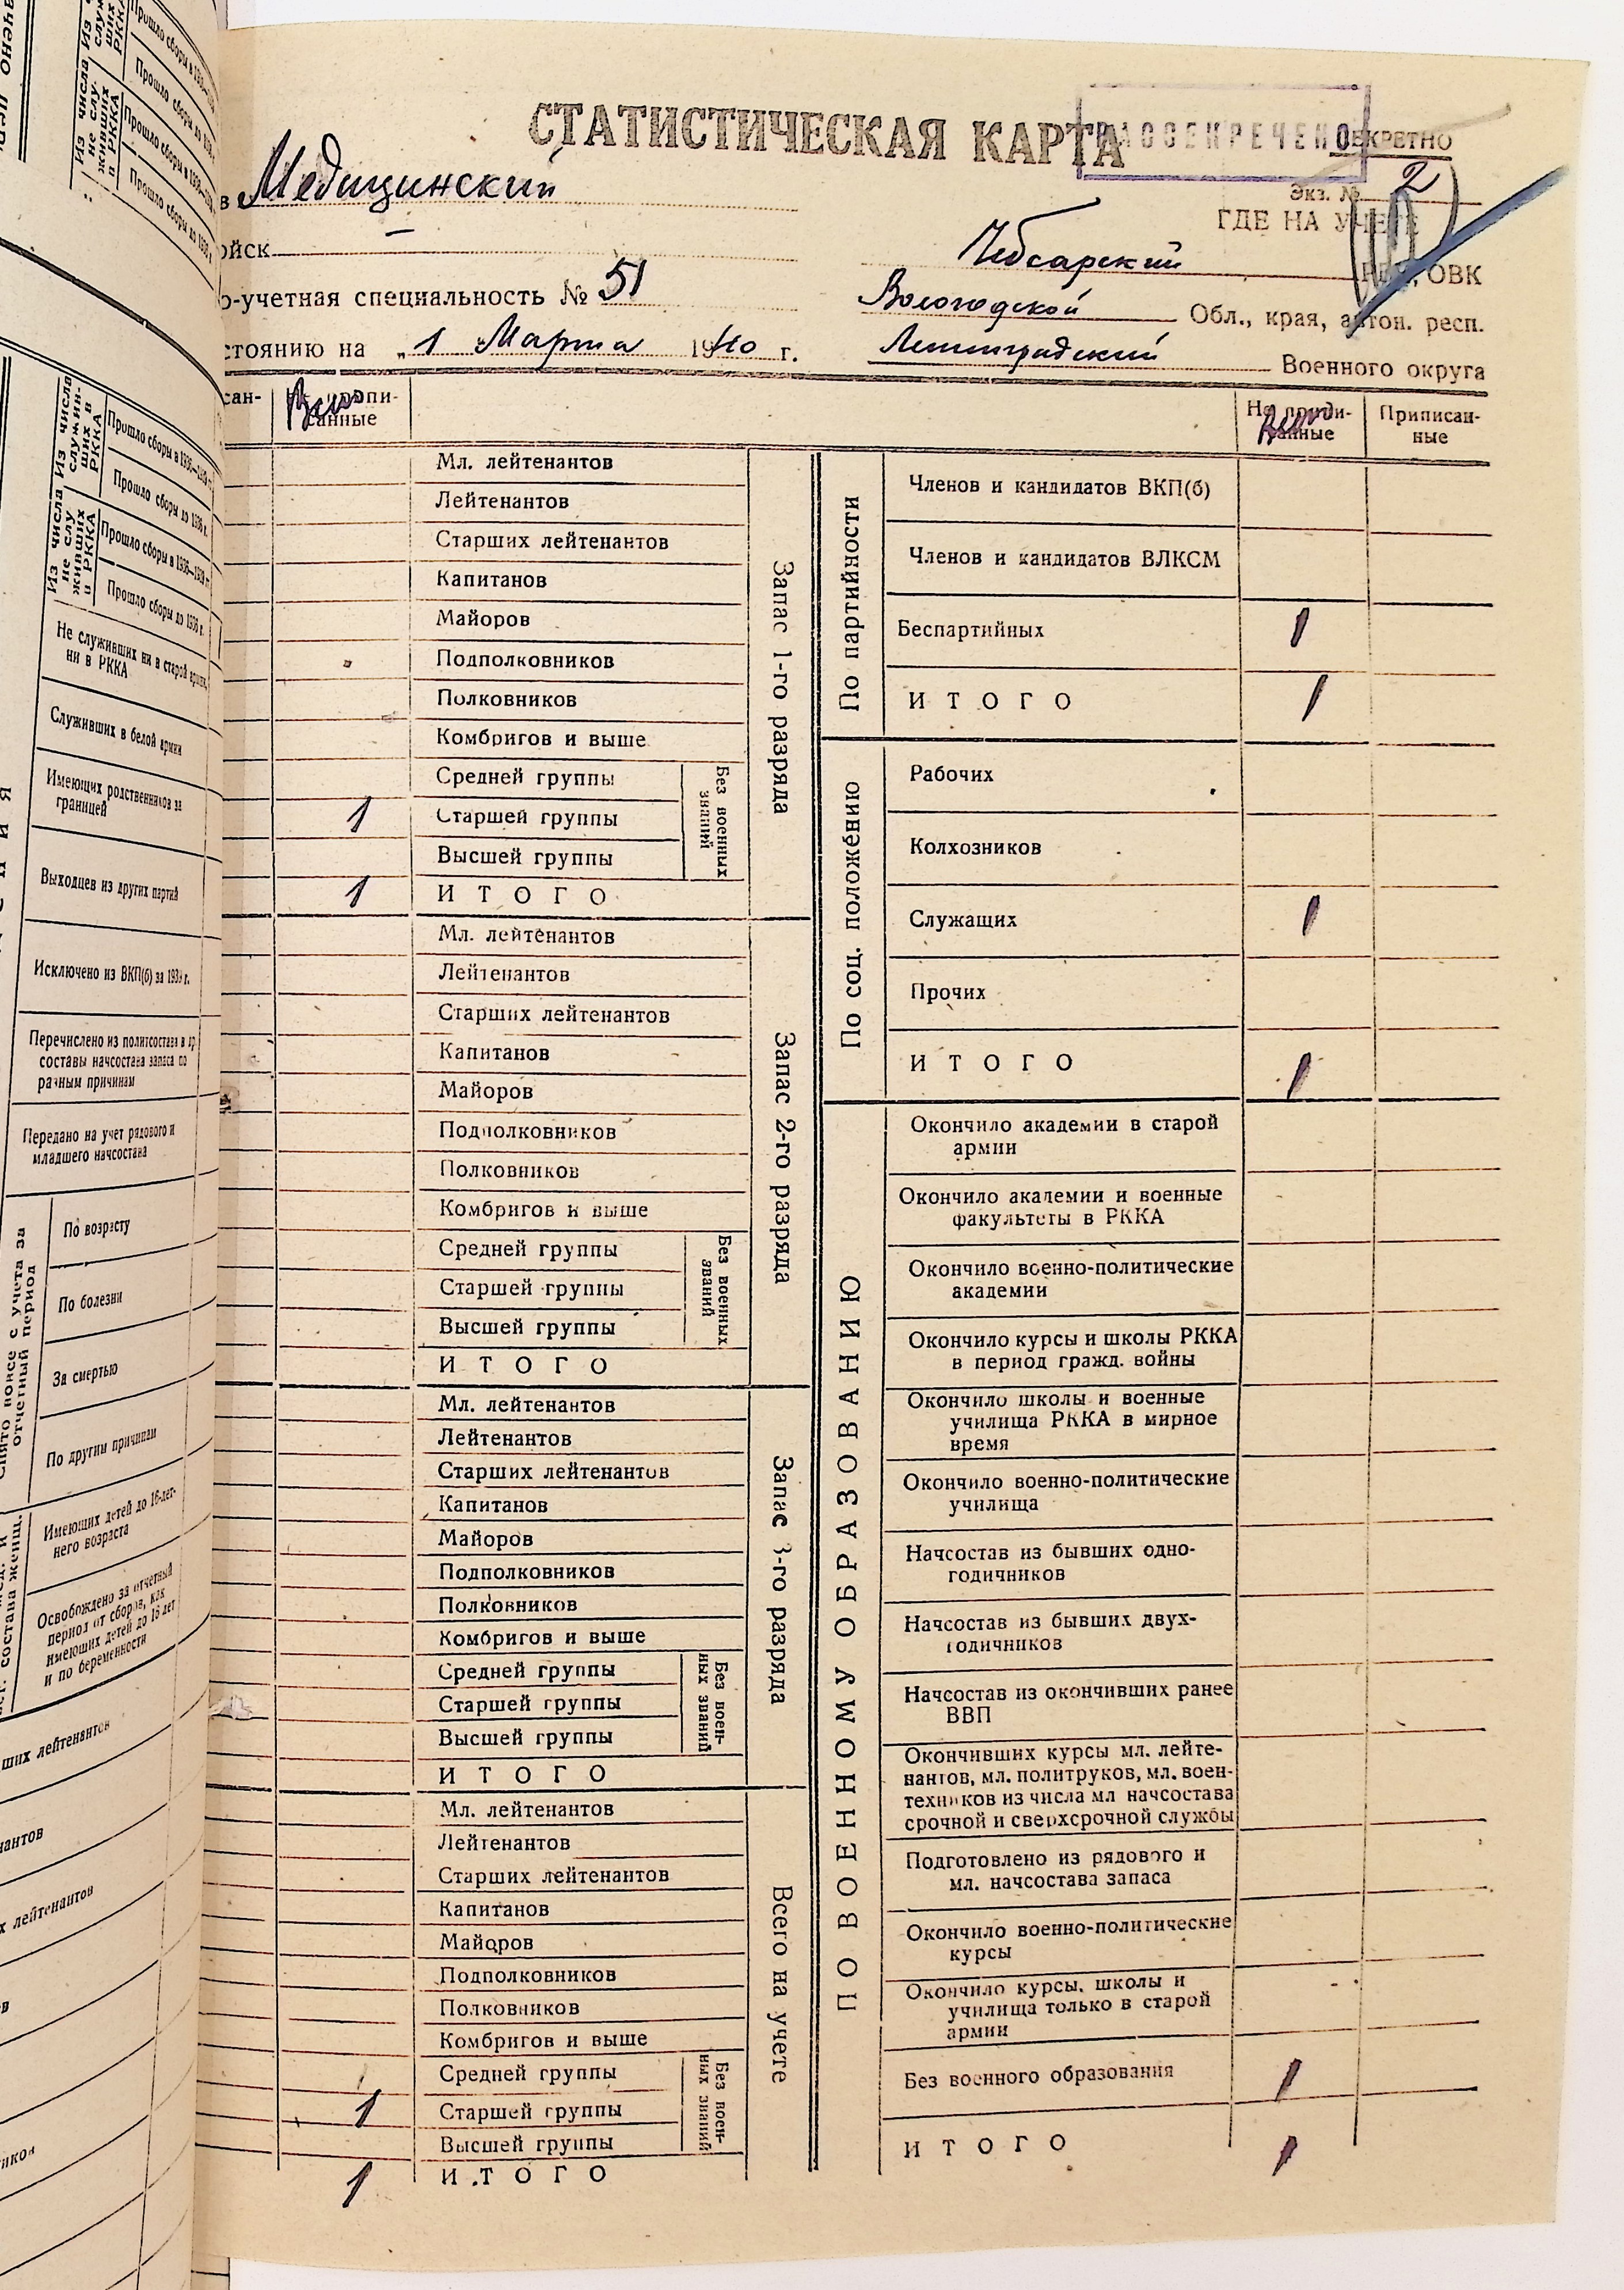 СТАТИСТИЧЕСКАЯ КАРТА
РАССЕКРЕЧЕНО
СЕКРЕТНО
Экз. № 2
ГДЕ НА УЧЕТЕ
в Медицинский
ойск —
о-учетная специальность № 51
стоянию на „1 Марта 1940 г.
Чебсарский РВК, ОВК
Вологодской Обл., края, автон. респ.
Ленинградский Военного округа
сан-
Не припи-
санные
Всего
Не припи-
санные
Всего
Приписан-
ные
Запас 1-го разряда
Мл. лейтенантов
Лейтенантов
Старших лейтенантов
Капитанов
Майоров
Подполковников
Полковников
Комбригов и выше
Без военных
званий
Средней группы
1 Старшей группы
Высшей группы
1 ИТОГО
Запас 2-го разряда
Мл. лейтенантов
Лейтенантов
Старших лейтенантов
Капитанов
Майоров
Подполковников
Полковников
Комбригов и выше
Без военных
званий
Средней группы
Старшей группы
Высшей группы
ИТОГО
Запас 3-го разряда
Мл. лейтенантов
Лейтенантов
Старших лейтенантов
Капитанов
Майоров
Подполковников
Полковников
Комбригов и выше
Без воен-
ных званий
Средней группы
Старшей группы
Высшей группы
ИТОГО
Всего на учете
Мл. лейтенантов
Лейтенантов
Старших лейтенантов
Капитанов
Майоров
Подполковников
Полковников
Комбригов и выше
Без воен-
ных званий
Средней группы
1 Старшей группы
Высшей группы
1 ИТОГО
По партийности
Членов и кандидатов ВКП(б)
Членов и кандидатов ВЛКСМ
Беспартийных 1
ИТОГО 1
По соц. положению
Рабочих
Колхозников
Служащих 1
Прочих
ИТОГО 1
ПО ВОЕННОМУ ОБРАЗОВАНИЮ
Окончило академии в старой
армии
Окончило академии и военные
факультеты в РККА
Окончило военно-политические
академии
Окончило курсы и школы РККА
в период гражд. войны
Окончило школы и военные
училища РККА в мирное
время
Окончило военно-политические
училища
Начсостав из бывших одно-
годичников
Начсостав из бывших двух-
годичников
Начсостав из окончивших ранее
ВВП
Окончивших курсы мл. лейте-
нантов, мл. политруков, мл. воен-
техников из числа мл начсостава
срочной и сверхсрочной службы
Подготовлено из рядового и
мл. начсостава запаса
Окончило военно-политические
курсы
Окончило курсы, школы и
училища только в старой
армии
Без военного образования 1
ИТОГО 1
Из числа
служив-
ших в
РККА
Прошло сборы в 1936—1939 г.
Прошло сборы до 1936 г.
Из числа
не слу-
живших
в РККА
Прошло сборы в 1936—1939 г.
Прошло сборы до 1936 г.
Не служивших ни в старой армии,
ни в РККА
Служивших в белой армии
Имеющих родственников за
границей
Выходцев из других партий
Исключено из ВКП(б) за 1939 г.
Перечислено из политсостава в др
составы начсостава запаса по
разным причинам
Передано на учет рядового и
младшего начсостава
с учета за
отчетный период
По возрасту
По болезни
За смертью
По другим причинам
состава женщ.
Имеющих детей до 16-лет-
него возраста
Освобождено за отчетный
период от сборов, как
имеющих детей до 16 лет
и по беременности
ших лейтенантов
нантов
х лейтенантов